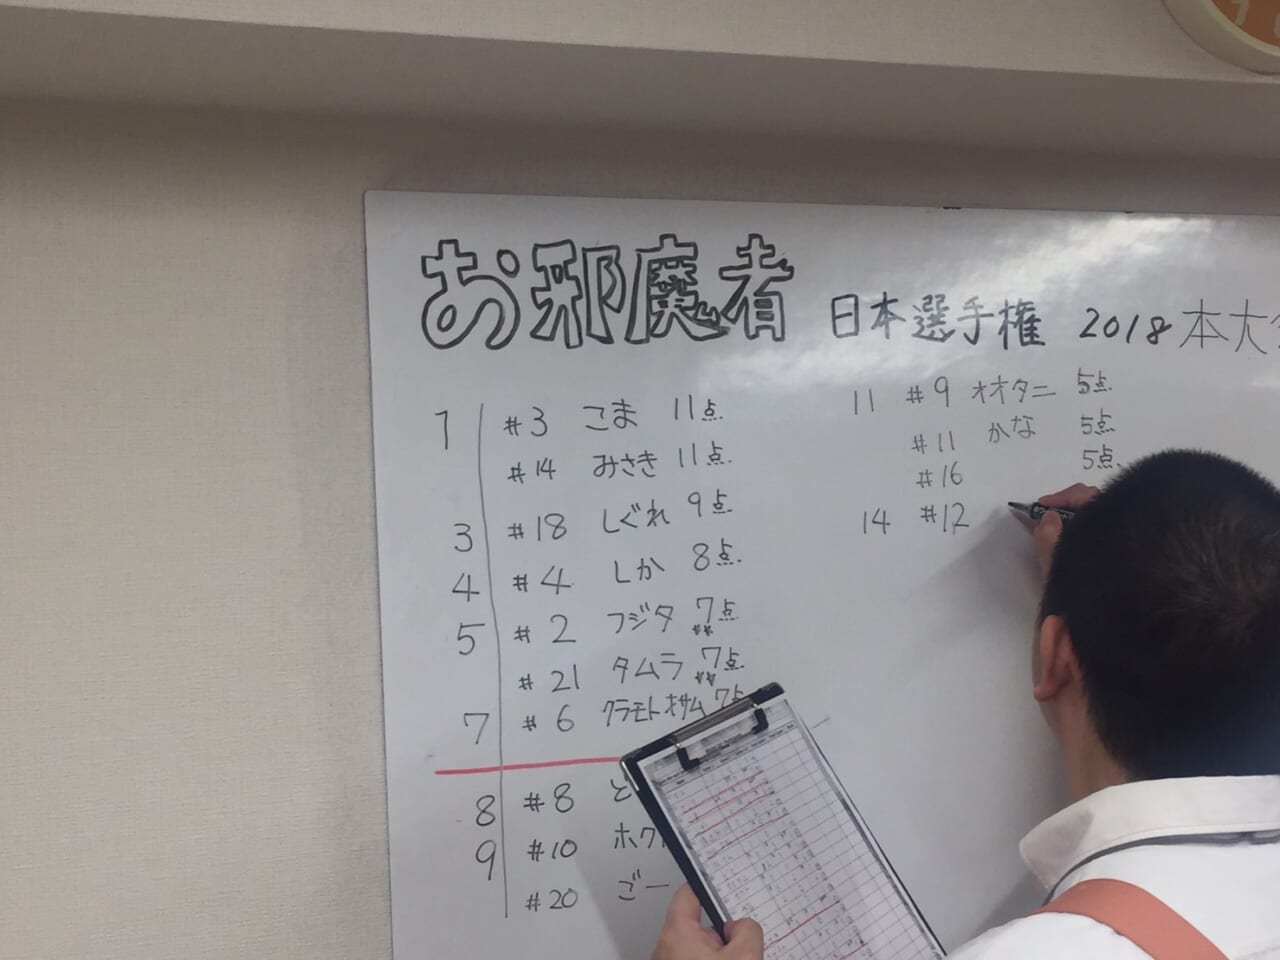 お邪魔者 日本選手権 2018 本大
1 #3 こま 11点
#14 みさき 11点
3 #18 しぐれ 9点
4 #4 しか 8点
5 #2 フジタ 7点
**
#21 タムラ 7点
**
7 #6 クラモトオサム 7点
8 #8
9 #10 ホク
#20 ごー
11 #9 オオタニ 5点
#11 かな 5点
#16 5点
14 #12